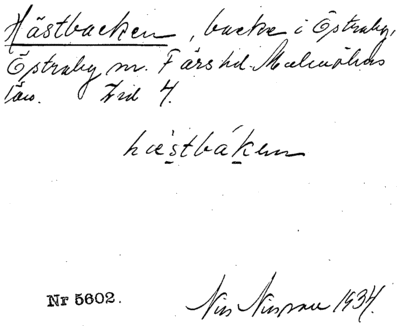 Hästbacken, backe i Östraby,
Östraby sn. Färs hd. Malmöhus
län. Ind 4.
hæstbákem
Nr 5602.
Nils Nilsson 1934.